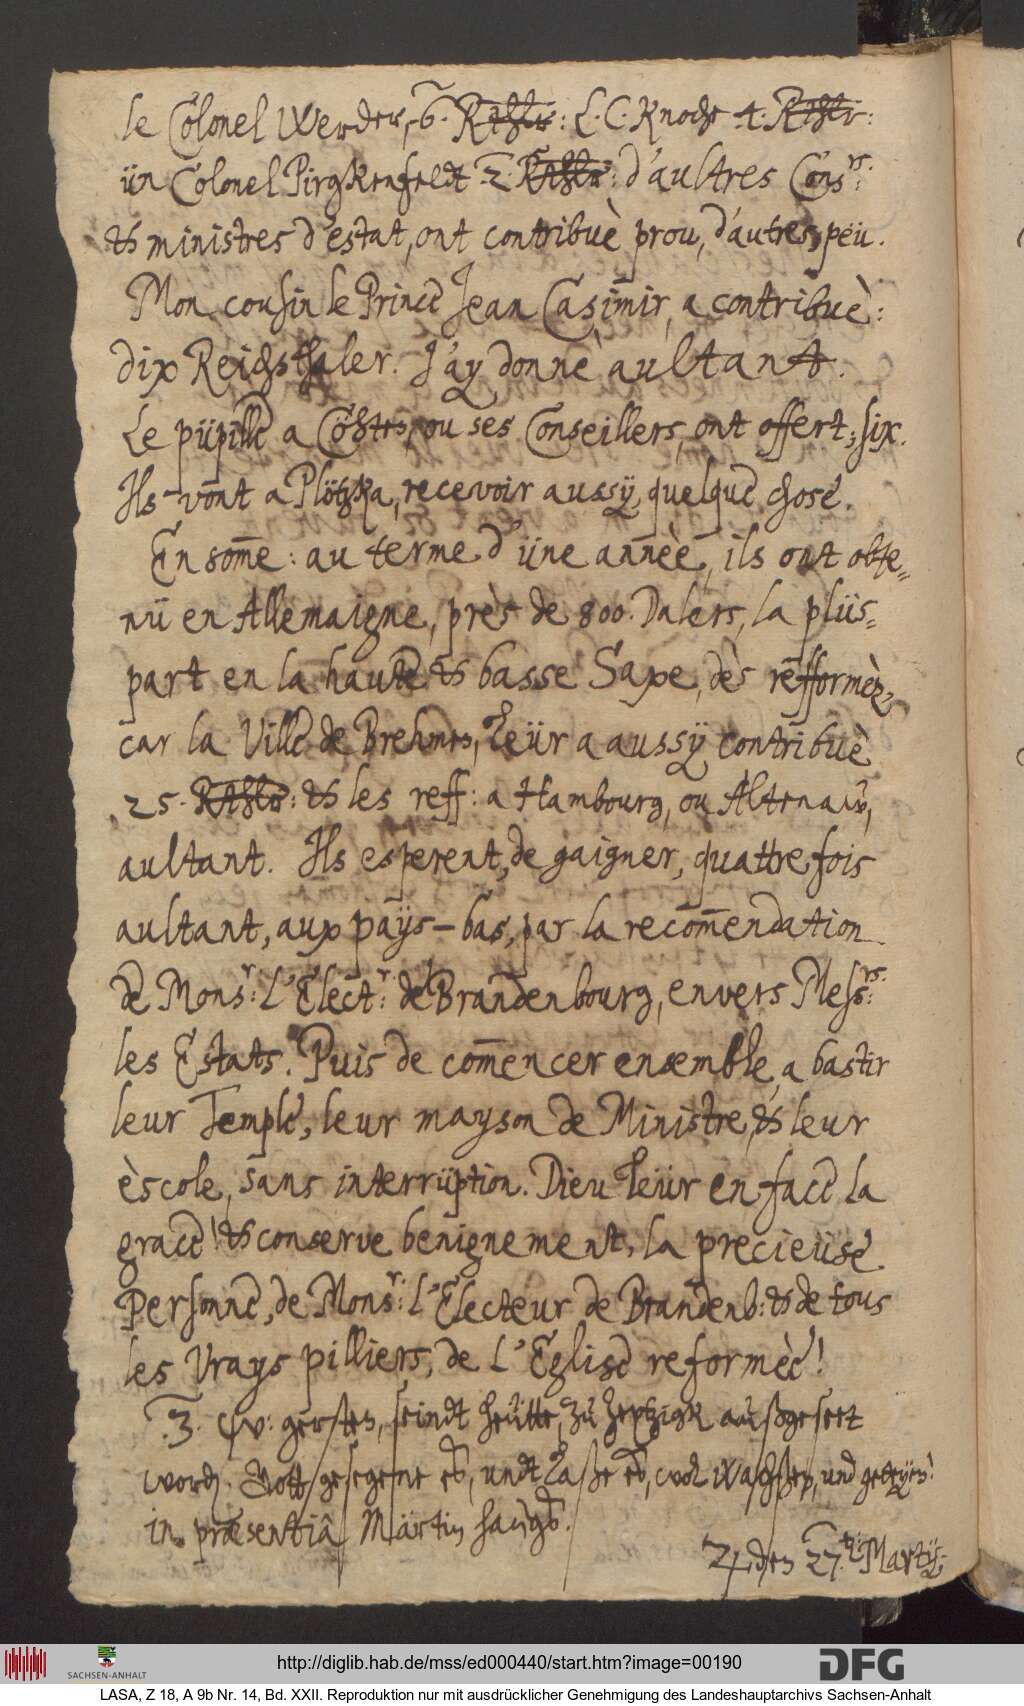 le Colonel Werder, 6. Rthlr: L. C. Knoche 4. Rthlr:
ün Colonel Pirgkenfeldt 2. Rthlr: d'aultres Cons.rs:
et ministres d'estat, ont contribuè prou, d'autres, peü.
Mon cousin le Prince Jean Casimir, a contribuè:
dix Reichsthaler. J'ay donnè aultant.
Le püpille a Cöhten, ou ses Conseillers, ont offert, six.
Ils vont a Plötzka, recevoir aussÿ quelque chose.
En som̄e: au terme d'üne annèe, ils ont obte-
nü en Allemaigne, près de 800. Dalers, la plüs-
part en la haute et basse Saxe, dès refformèz,
car la Ville de Brehmen, leür a aussÿ contribuè
25. Rthlr: et les reff: a Hambourg, ou Altenaw,
aultant. Ils esperent, de gaigner, quattre fois
aultant, aux païs-bas, par la recom̄endation
de Mons.r: L'Elect.r: de Brandenbourg, envers Mess.rs:
les Estats. Puis de com̄encer ensemble, a bastir
leur Temple, leur mayson de Ministre, et leur
èscole, sans interrüption. Dieu leür en face la
grace! et conserve benignement, la precieüse
Personne, de Mons.r: L'Electeur de Brandenb: et de tous
les Vrays pilliers, de L'Eglise reformèe!
3. W: gersten, seindt heütte, zu Zeptzigk außgeseet
worden. Gott gesegene es, undt laße es, wol wachßen, und gedeyen!
in præsentia Märtin
den 27. Martij:
http://diglib.hab.de/mss/ed000440/start.htm?image=00190
SACHSEN-ANHALT
DFG
LASA, Z 18, A 9b Nr. 14, Bd. XXII. Reproduktion nur mit ausdrücklicher Genehmigung des Landeshauptarchivs Sachsen-Anhalt